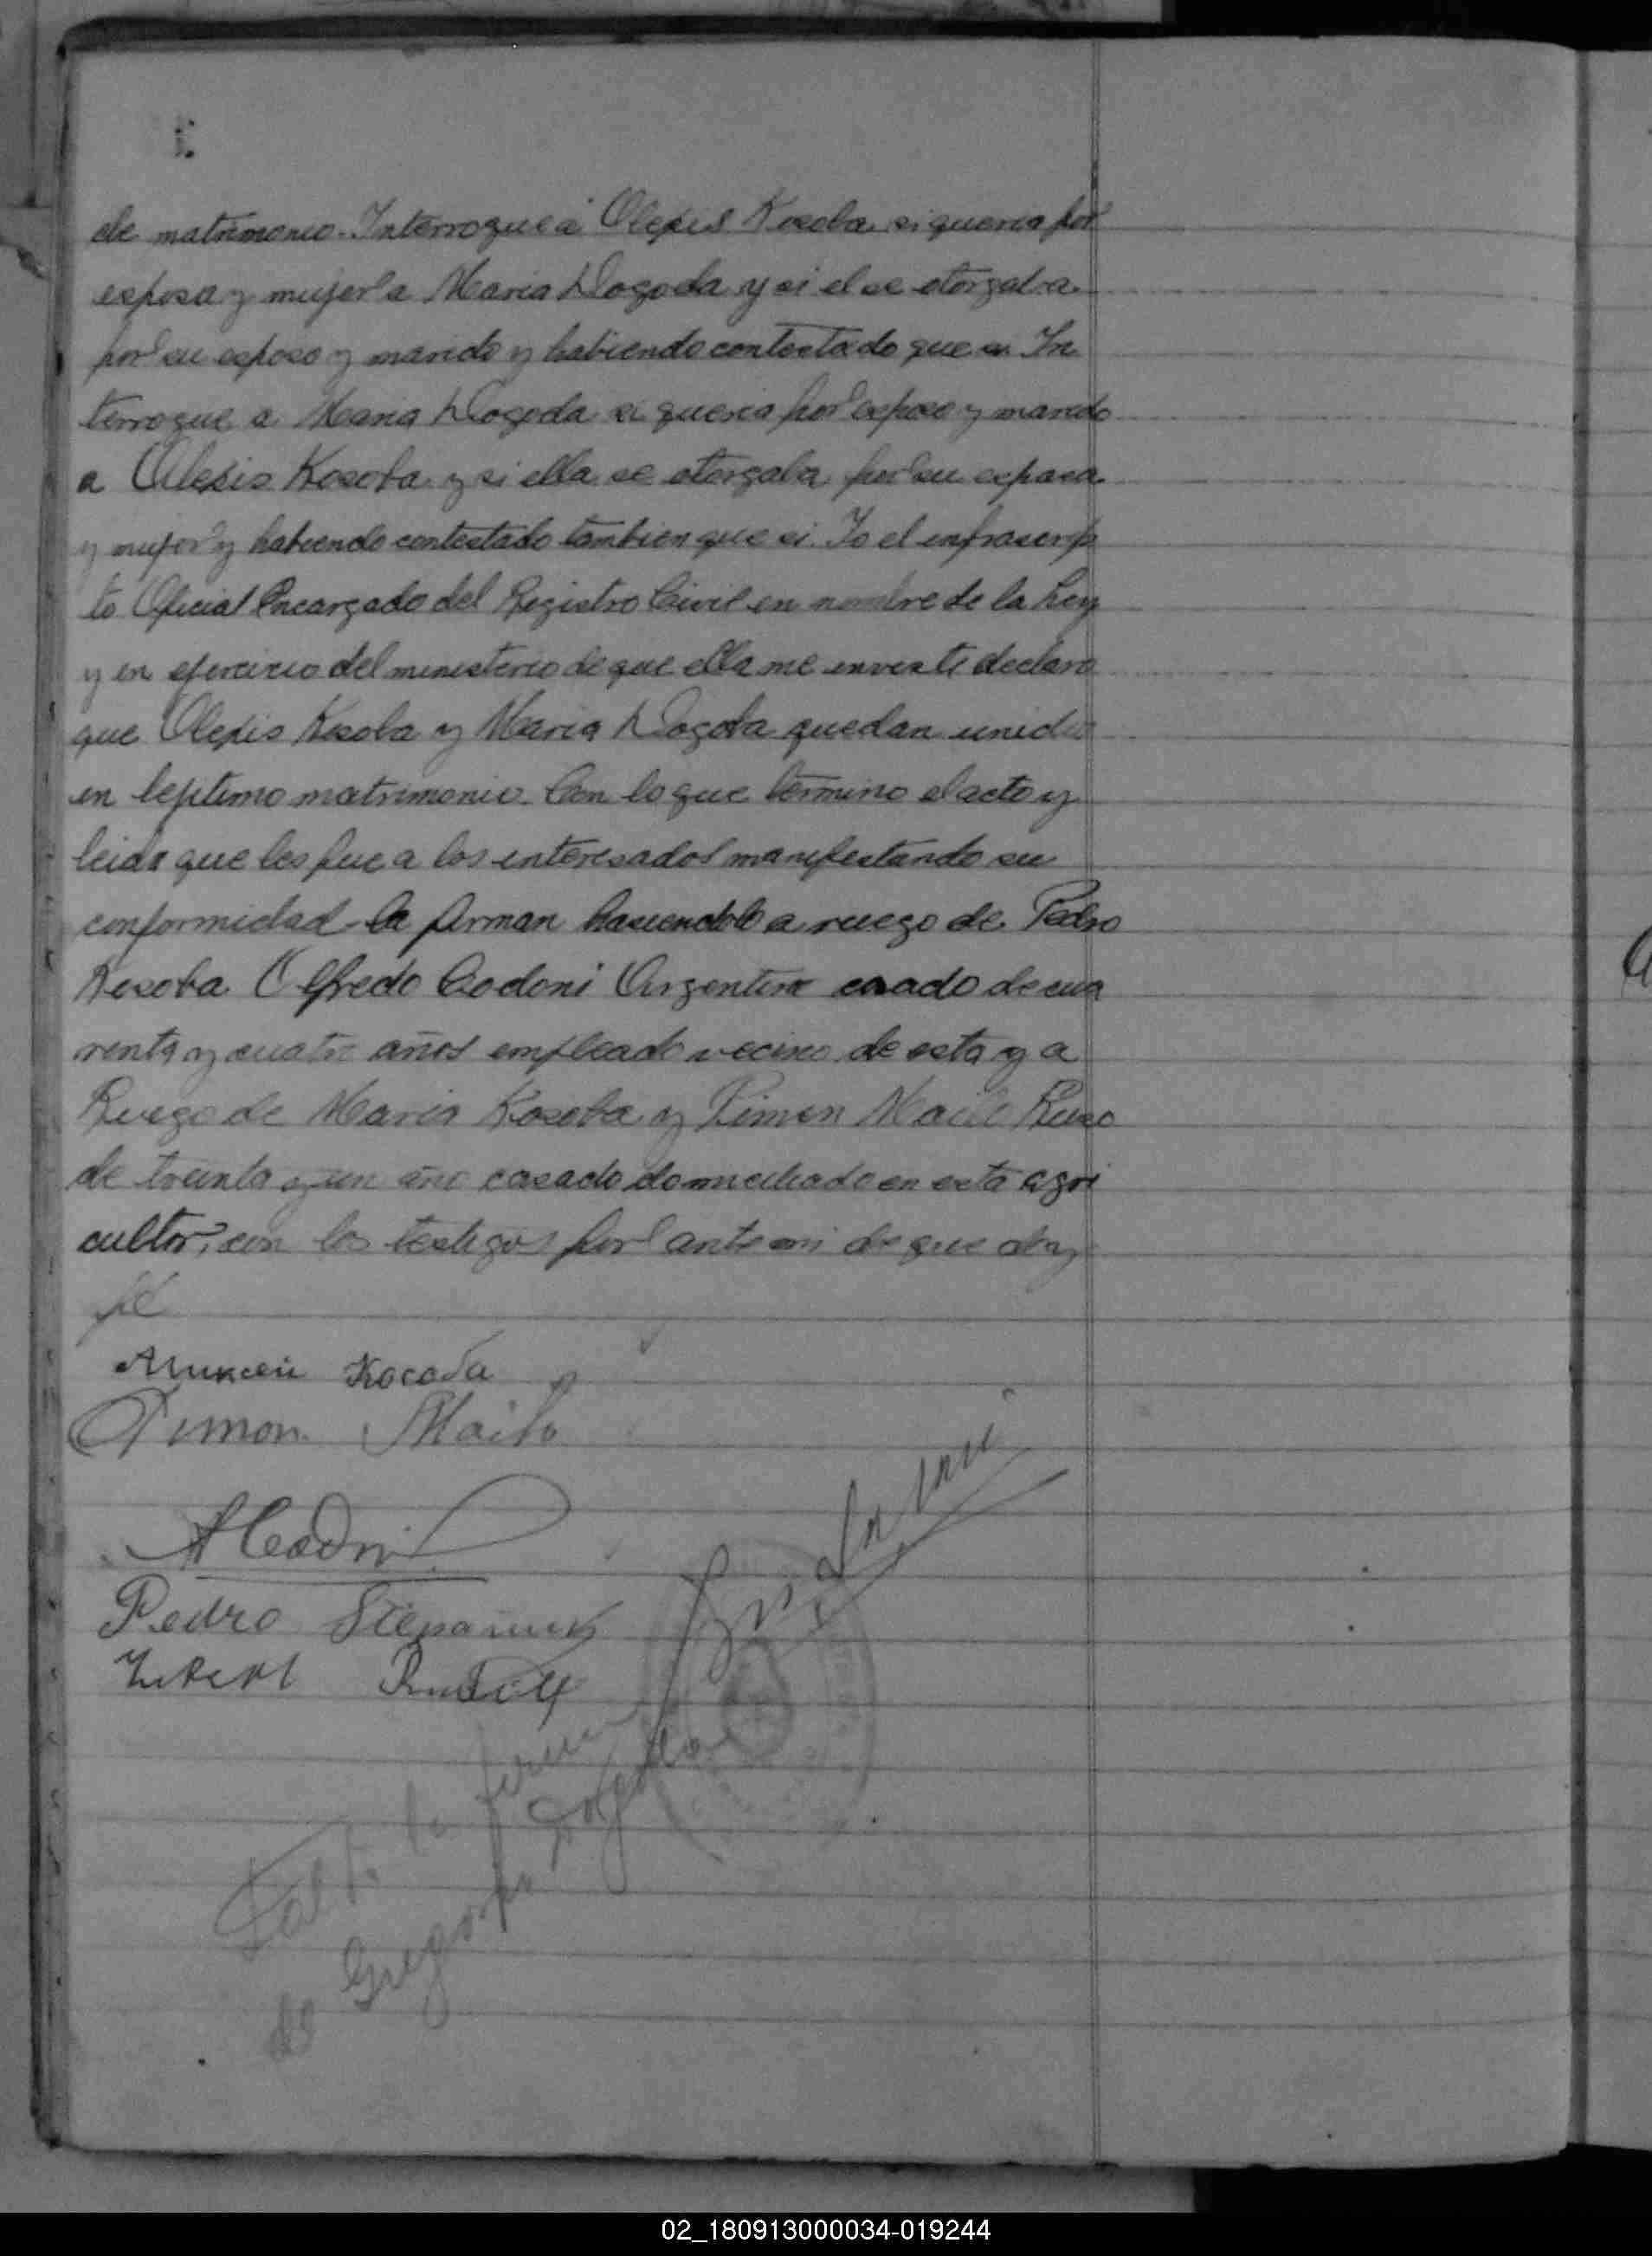 de matrimonio. Interrogue a Olexis Kosoba si queria por
esposa y mujer a Maria Dogoda y si el se otorgaba
por su esposo y marido y habiendo contestado que si. In
terrogue a Maria Dogoda si queria por esposo y marido
a Olexis Kosoba y si ella se otorgaba por su esposa
y mujer y habiendo contestado tambien que si. Yo el infrascrip
to Oficial Encargado del Registro Civil en nombre de la Ley
y en ejercicio del ministerio de que ella me investe declaro
que Olexis Kosoba y Maria Dogoda quedan unidos
en lejitimo matrimonio. Con lo que termino el acto y
leida que les fue a los interesados manifestando su
conformidad la firman hasiendolo a ruego de Pedro
Kosoba Alfredo Codoni Argentino casado de cua
renta y cuatro años empleado vecino de esta y a
Ruego de Maria Kosoba y Pimon Mailo Ruso
de treinta y un año casado domiciliado en esta agri
cultor, con los testigos por ante mi de que doy
fé
Аликсеи Кособа
Pimon Mailo
ACodoni
Pedro Stepaniuk
Rudolf
Falta la firma
de Gregorio Dogoda
02_180913000034-019244